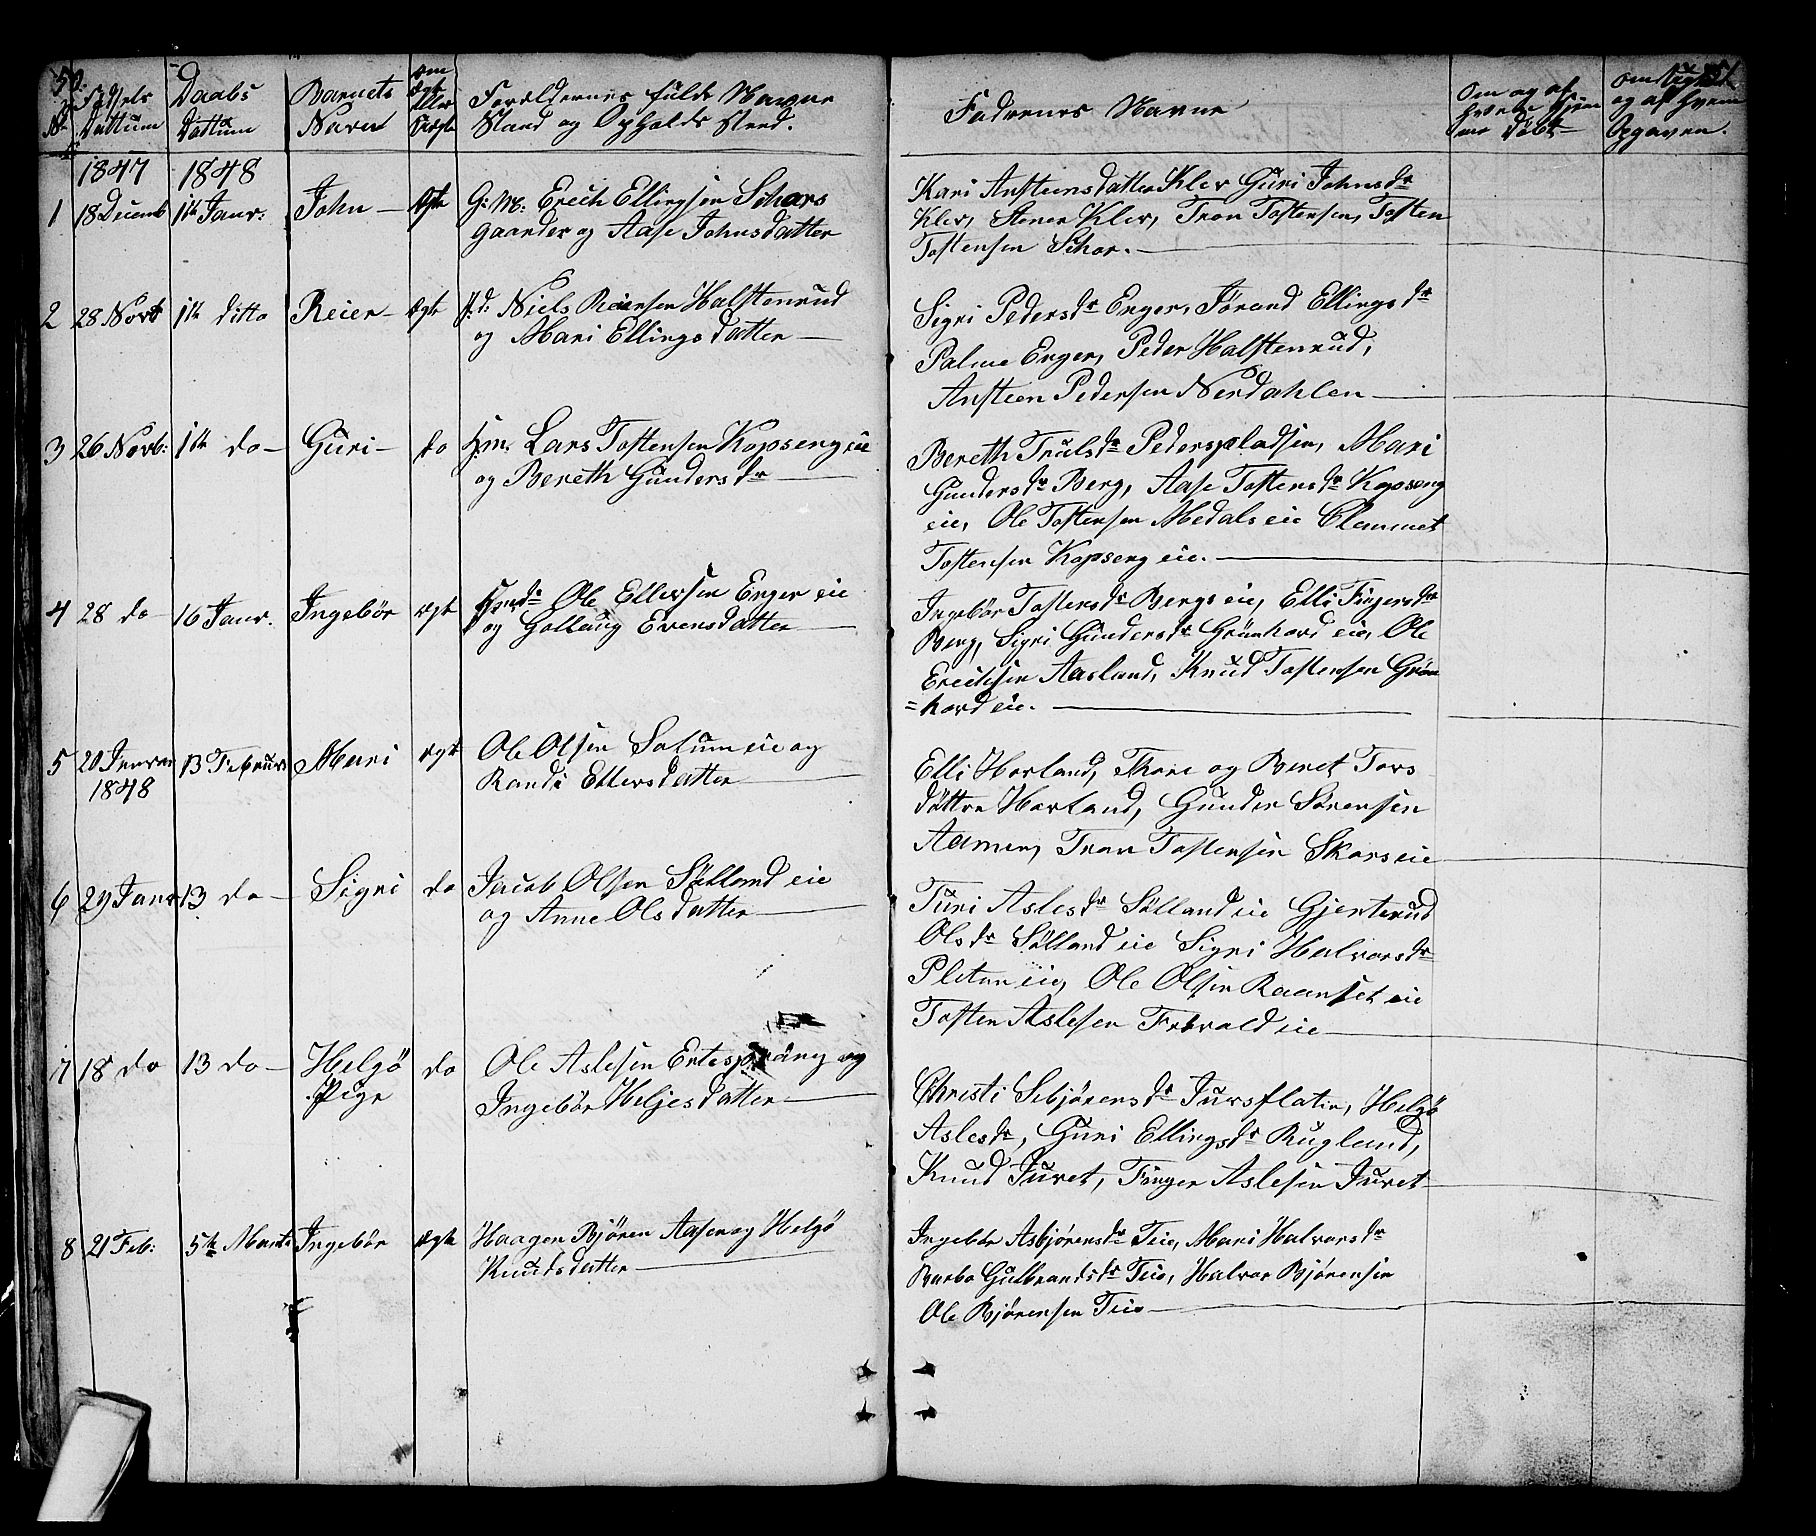 50.
No Fødsels Dattum
Daabs Dattum
Barnets Navn
Om Ægte Eller Uægte
Forældernes fulde Navne
Stand og Opholds sted.
Fadrenes Navne
Om og af hvem Hjemme Døbt
og af Hvem Opgaven.
1847 1848
1 18 Decemb 1te Janr: John – Ægte G: M: Erich Ellingsen Skars
gaarder og Aase Johnsdatter
Kari Ansteensdatter Klev Guri Johnsdr
Klev, Stener Klev, Tron Tostensen, Tosten
Tostensen Skar.
2 28 Novb 1te ditto Reier – Ægte Niels Reiersen Halstenrud
og Mari Ellingsdatter
Sigri Pedersdr Enger, Jørand Ellingsdr
Palme Enger, Peder Halstenrud,
Ansteen Pedersen Nerdahlen
3 26 Novb: 1te do – Guri – do Hm. Lars Tostensen Kopseng eie
og Bereth Gundersdr
Bereth Trulsdr Pederspladsen, Mari
Gundersdr Berg, Aase Tostensdr Kopseng
eie, Ole Tostensen Medals eie Clemmet
Tostensen Kopseng eie.
4 28 do – 16 Janr. Ingebør ægte Ole Ellefsen Enger eie
og Gollaug Evensdatter
Ingebør Tostensdr Bergs eie, Elli Fingersdr
Berg, Sigri Gundersdr Grønhovd eie, Ole
Erichsen Aasland, Knud Tostensen Grøn
=hovd eie.
5 20 Januar 1848 13 Februar Mari ægte Ole Olsen Solum eie og
Randi Ellersdatter
Elli Horland, Thore og Beret Tors
døttre Horland, Gunder Sørensen
Aamen, Tron Tostensen Skars eie
6 29 Janr 13 do – Sigri do Jacob Olsen Sølland eie
og Anne Olsdatter
Turi Aslesdr Sølland eie Gjerterud
Olsdr Sølland eie Sigri Halvorsdr
Pleten eie, Ole Olsen Raanset eie
Tosten Aslesen Frøvold eie
7 18 do 13 do – Helgø Pige do Ole Aslesen Ertespræng og
Ingebør Heljesdatter
Christi Sebjørensdr Juvsflaten, Helgø
Aslesdr, Guri Ellingsdr Rugland,
Knud Juvet, Finger Aslesen Juvet
8 21 Feb: 5te Marts Ingebør ægte Haagen Bjøren Aasen og Helgø
Knudsdatter
Ingebør Asbjørensdr Teie, Mari Halvorsdr
Barbo Gulbrandsdr Teie, Halvor Bjørensen
Ole Bjørensen Teie